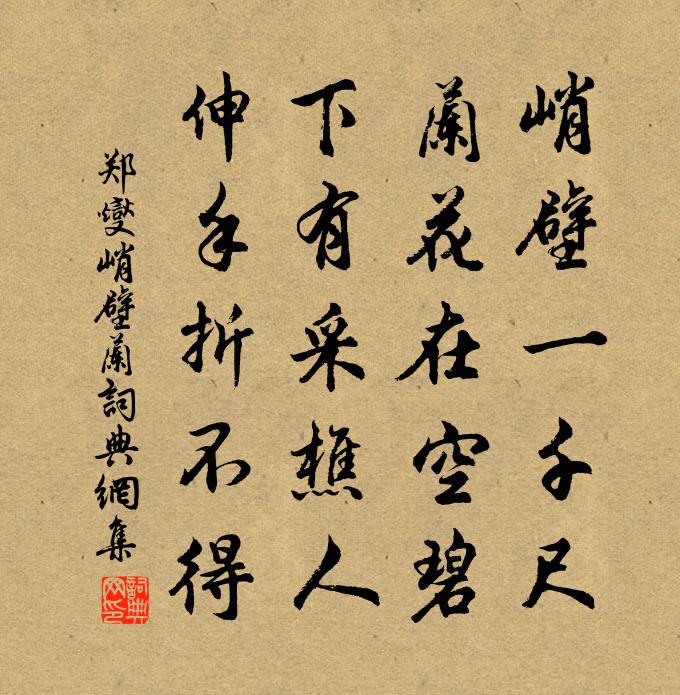 峭壁一千尺
蘭花在空碧
下有采樵人
伸手折不得
郑燮峭壁蘭詞典網集
詞典网印